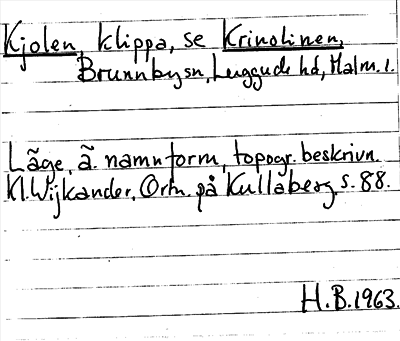 Kjolen, klippa, se Krinolinen,
Brunnby sn, Luggude hd, Malm. l.
Läge, ä. namnform, topogr. beskrivn.
Kl. Wijkander, Ortn. på Kullaberg s. 88.
H.B. 1963.